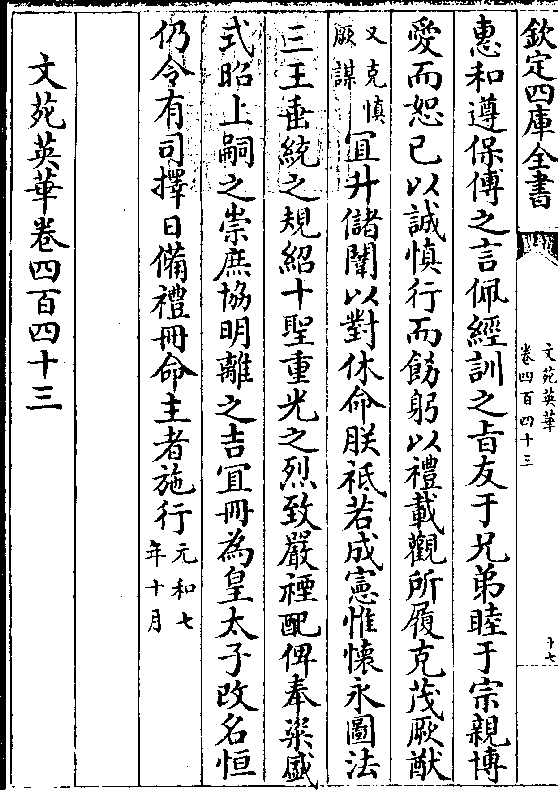 欽定四庫全書
文苑英華
卷四百四十三
十七
惠和遵保傅之言佩經訓之旨友于兄弟睦于宗親博
愛而恕己以誠慎行而飭躬以禮載觀所履克茂厥猷
又克慎
厥謀
宜升儲闈以對休命朕祗若成憲惟懷永圖法
三王垂統之規紹十聖重光之烈致嚴禋配俾奉粢盛
式昭上嗣之崇庶協明離之吉宜冊為皇太子改名恒
仍令有司擇日備禮冊命主者施行
元和七
年十月
文苑英華卷四百四十三